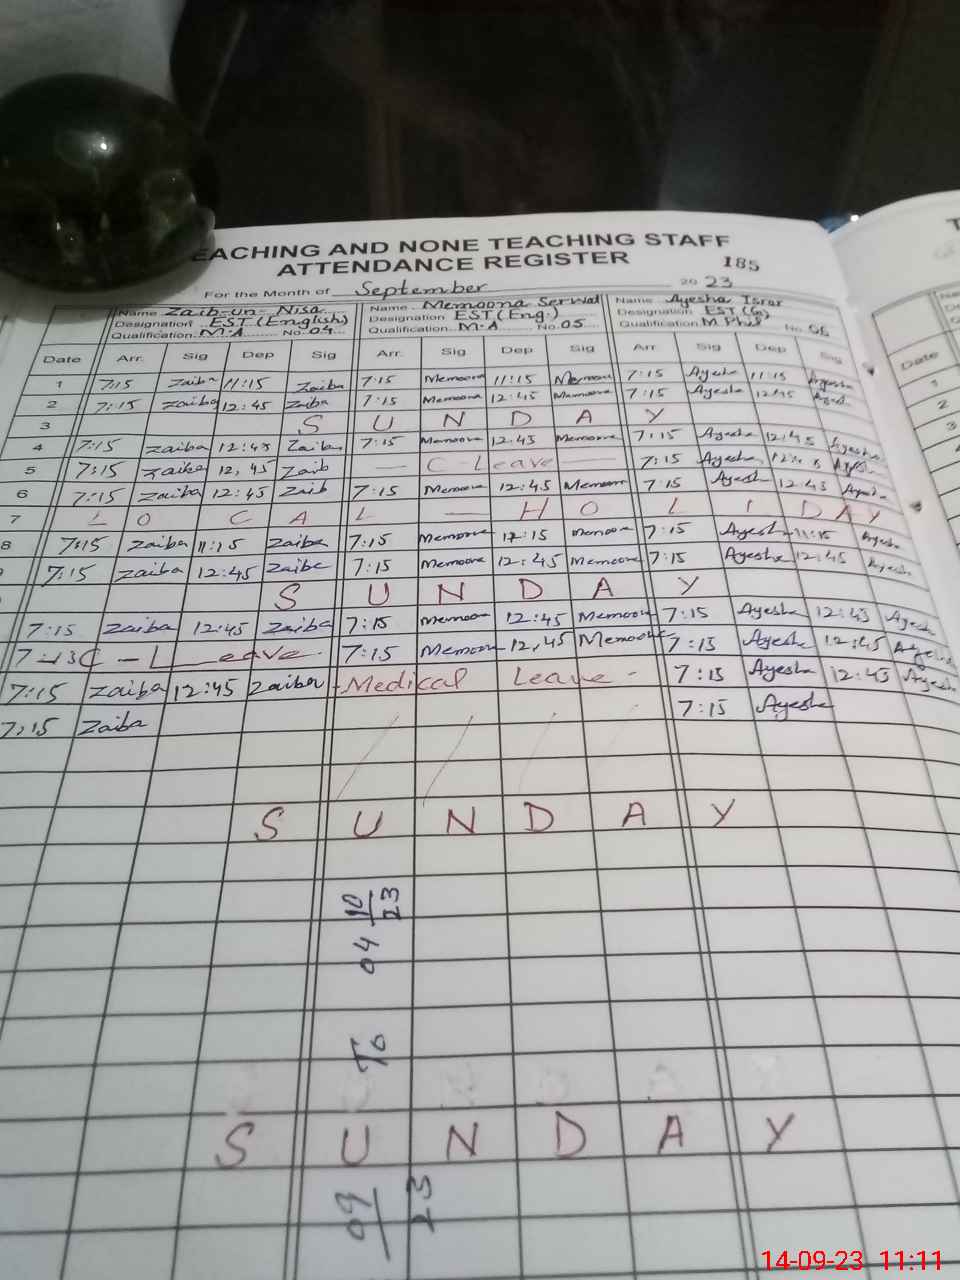 EACHING AND NONE TEACHING STAFF
ATTENDANCE REGISTER 185
For the Month of September 2023
Name Zaib-un-Nisa Name Memoona Serwat Name Ayesha Israr
Designation EST (English) Designation EST (Eng.) Designation EST (G)
Qualification M.A No. 04 Qualification M.A No. 05 Qualification M Phil No. 06
Date Arr. Sig Dep Sig Arr. Sig Dep Sig Arr Sig Dep Sig
1 7:15 Zaiba 11:15 Zaiba 7:15 Memoona 11:15 Memoona 7:15 Ayesha 11:15 Ayesha
2 7:15 Zaiba 12:45 Zaiba 7:15 Memoona 12:45 Memoona 7:15 Ayesha 12:45
3 S U N D A Y
4 7:15 Zaiba 12:45 Zaiba 7:15 Memoona 12:45 Memoona 7:15 Ayesha 12:45 Ayesha
5 7:15 Zaiba 12:45 Zaib — C Leave — 7:15 Ayesha
6 7:15 Zaiba 12:45 Zaib 7:15 Memoona 12:45 Memoona 7:15 Ayesha 12:45 Ayesha
7 L O C A L — H O L I D A Y
8 7:15 Zaiba 11:15 Zaiba 7:15 Memoona 11:15 Memoona 7:15 Ayesha 11:15 Ayesha
7:15 Zaiba 12:45 Zaiba 7:15 Memoona 12:45 Memoona 7:15 Ayesha 12:45 Ayesha
S U N D A Y
7:15 Zaiba 12:45 Zaiba 7:15 Memoona 12:45 Memoona 7:15 Ayesha 12:45 Ayesha
C - Leave 7:15 Memoona 12:45 Memoona 7:15 Ayesha 12:45 Ayesha
7:15 Zaiba 12:45 Zaiba - Medical Leave - 7:15 Ayesha 12:45 Ayesha
7:15 Zaiba 7:15 Ayesha
S U N D A Y
04 10/23
To
S U N D A Y
09/23
Date
1
2
3
14-09-23 11:11